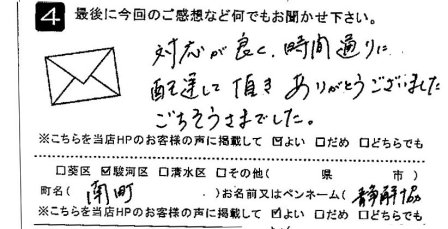 4 最後に今回のご感想など何でもお聞かせ下さい。
対応が良く、時間通りに
配達して頂き ありがとうございました
ごちそうさまでした。
※こちらを当店HPのお客様の声に掲載して ☑よい □だめ □どちらでも
□葵区 ☑駿河区 □清水区 □その他( 県 市)
町名( 南町 )お名前又はペンネーム( 静 協
※こちらを当店HPのお客様の声に掲載して ☑よい □だめ □どちらでも